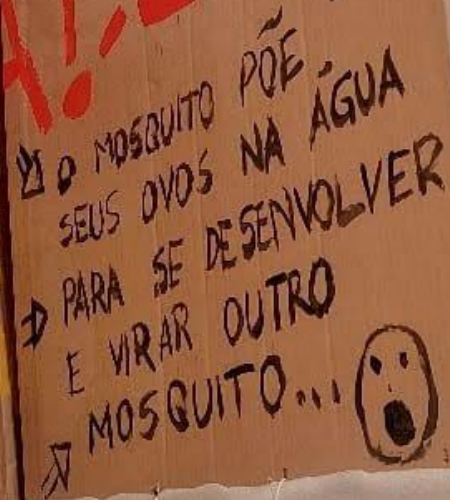 A!
O MOSQUITO PÕE
SEUS OVOS NA ÁGUA
PARA SE DESENVOLVER
E VIRAR OUTRO
MOSQUITO...